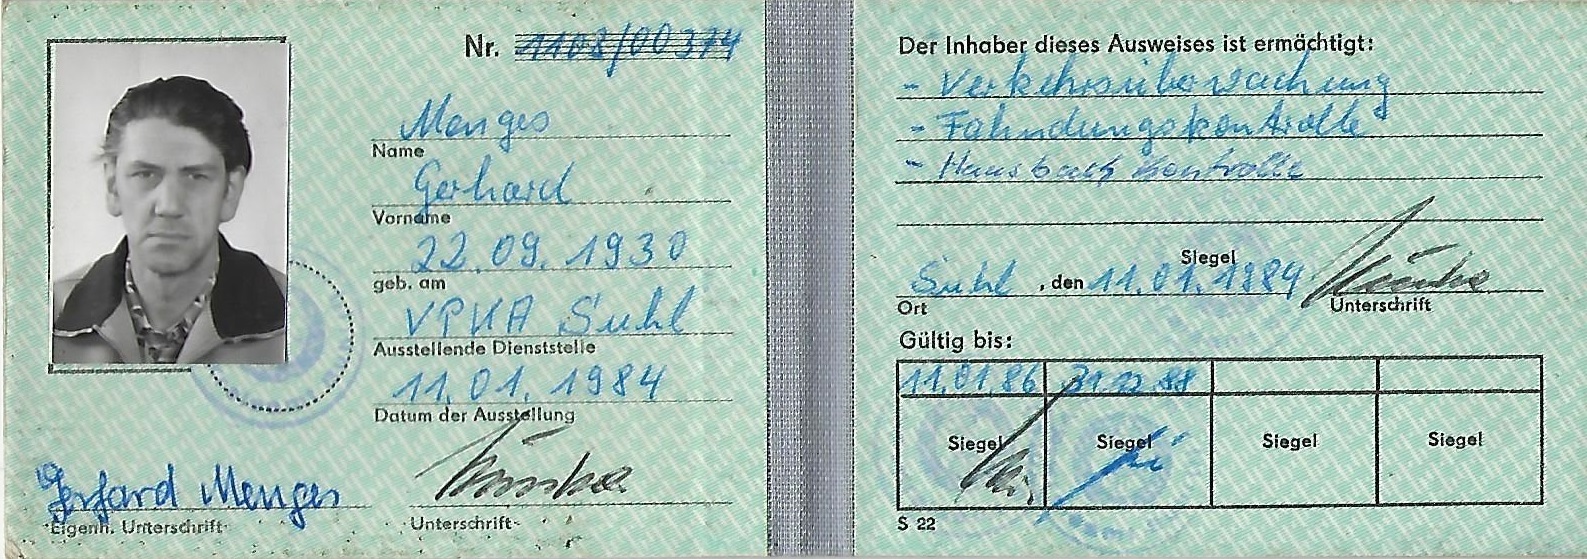 Nr. 1108/00374
Menges
Name
Gerhard
Vorname
22.09.1930
geb. am
VPKA Suhl
Ausstellende Dienststelle
11.01.1984
Datum der Ausstellung
Gerhard Menges
Eigenh. Unterschrift
Unterschrift
Der Inhaber dieses Ausweises ist ermächtigt:
- Verkehrsüberwachung
- Fahndungskontrolle
- Hausbuch Kontrolle
Siegel
Suhl, den 11.01.1984
Ort
Unterschrift
Gültig bis:
11.01.86 31.12.88
Siegel Siegel Siegel Siegel
S 22